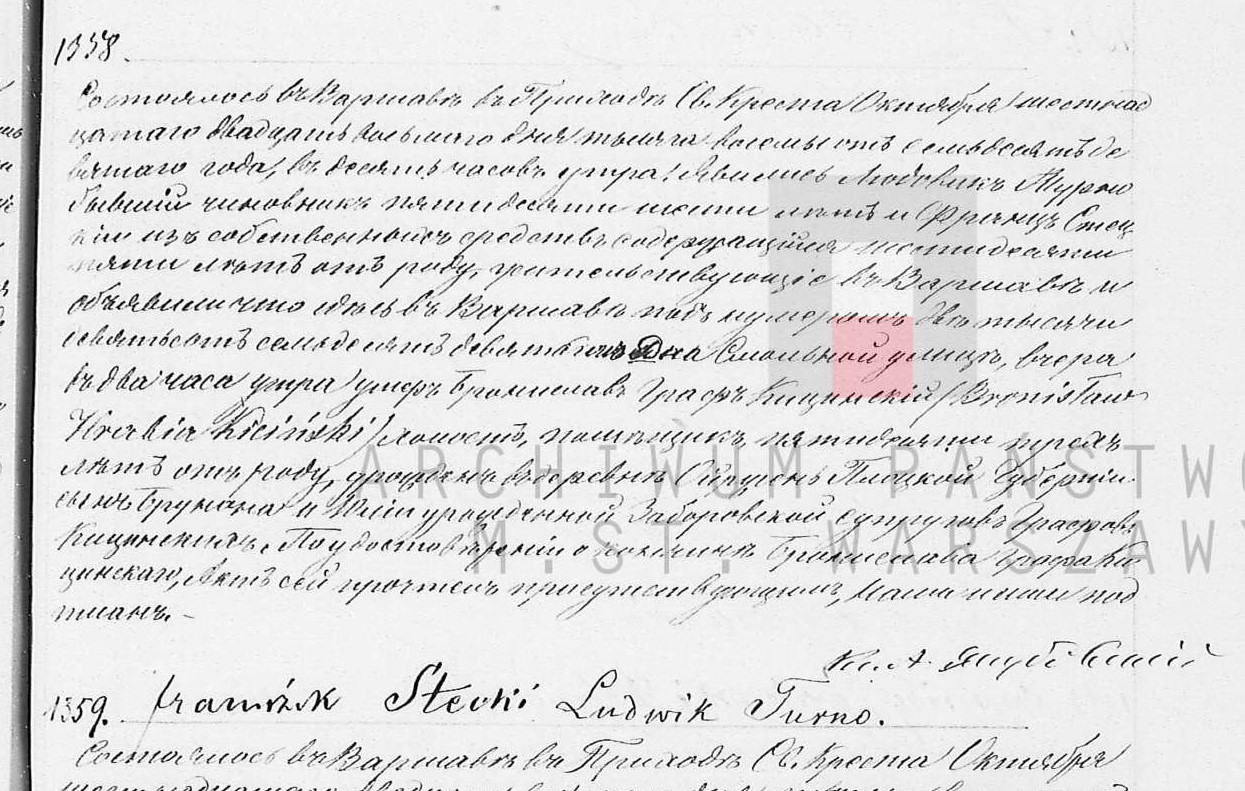 1358.
Состоялось въ Варшавѣ въ Приходѣ Св. Креста Октября шестнад
цатаго двадцать восьмаго дня тысяча восемьсотъ семьдесятъ де
вятаго года, въ десять часовъ утра. Явились Людовикъ Турно
бывшій чиновникъ пятидесяти шести лѣтъ и Францъ Стец
кій изъ собственныхъ средствъ содержащійся шестидесяти
пяти лѣтъ отъ роду, жительствующіе въ Варшавѣ и
объявили что здѣсь въ Варшавѣ подъ нумеромъ двѣ тысячи
девятьсотъ семьдесятъ девять на Смольной улицѣ, вчера
въ два часа утра умеръ Брониславъ Графъ Кицинскій /Bronisław
Hrabia Kiciński/ холостъ, помѣщикъ, пятидесяти трехъ
лѣтъ отъ роду, урожденъ въ деревнѣ Плоцкой Губерніи
сынъ Брунона и урожденной Заборовской супруговъ Графовъ
Кицинскихъ. По удостовѣреніи о кончинѣ Бронислава Графа Ки
цинскаго, Актъ сей прочтенъ присутствующимъ, нами и ими под
писанъ.-
Кс. А. Якубовскій
Franciszek Stecki Ludwik Turno.
1359.
Состоялось въ Варшавѣ въ Приходѣ Св. Креста Октября
ARCHIWUM PAŃSTWO
M. ST. WARSZAWY